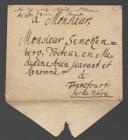 à Monsieur
Monsieur Sencken-
berg, Docteur en Me-
decine très sçavant et
Renommé
à
Francfourt
sur le Mayn